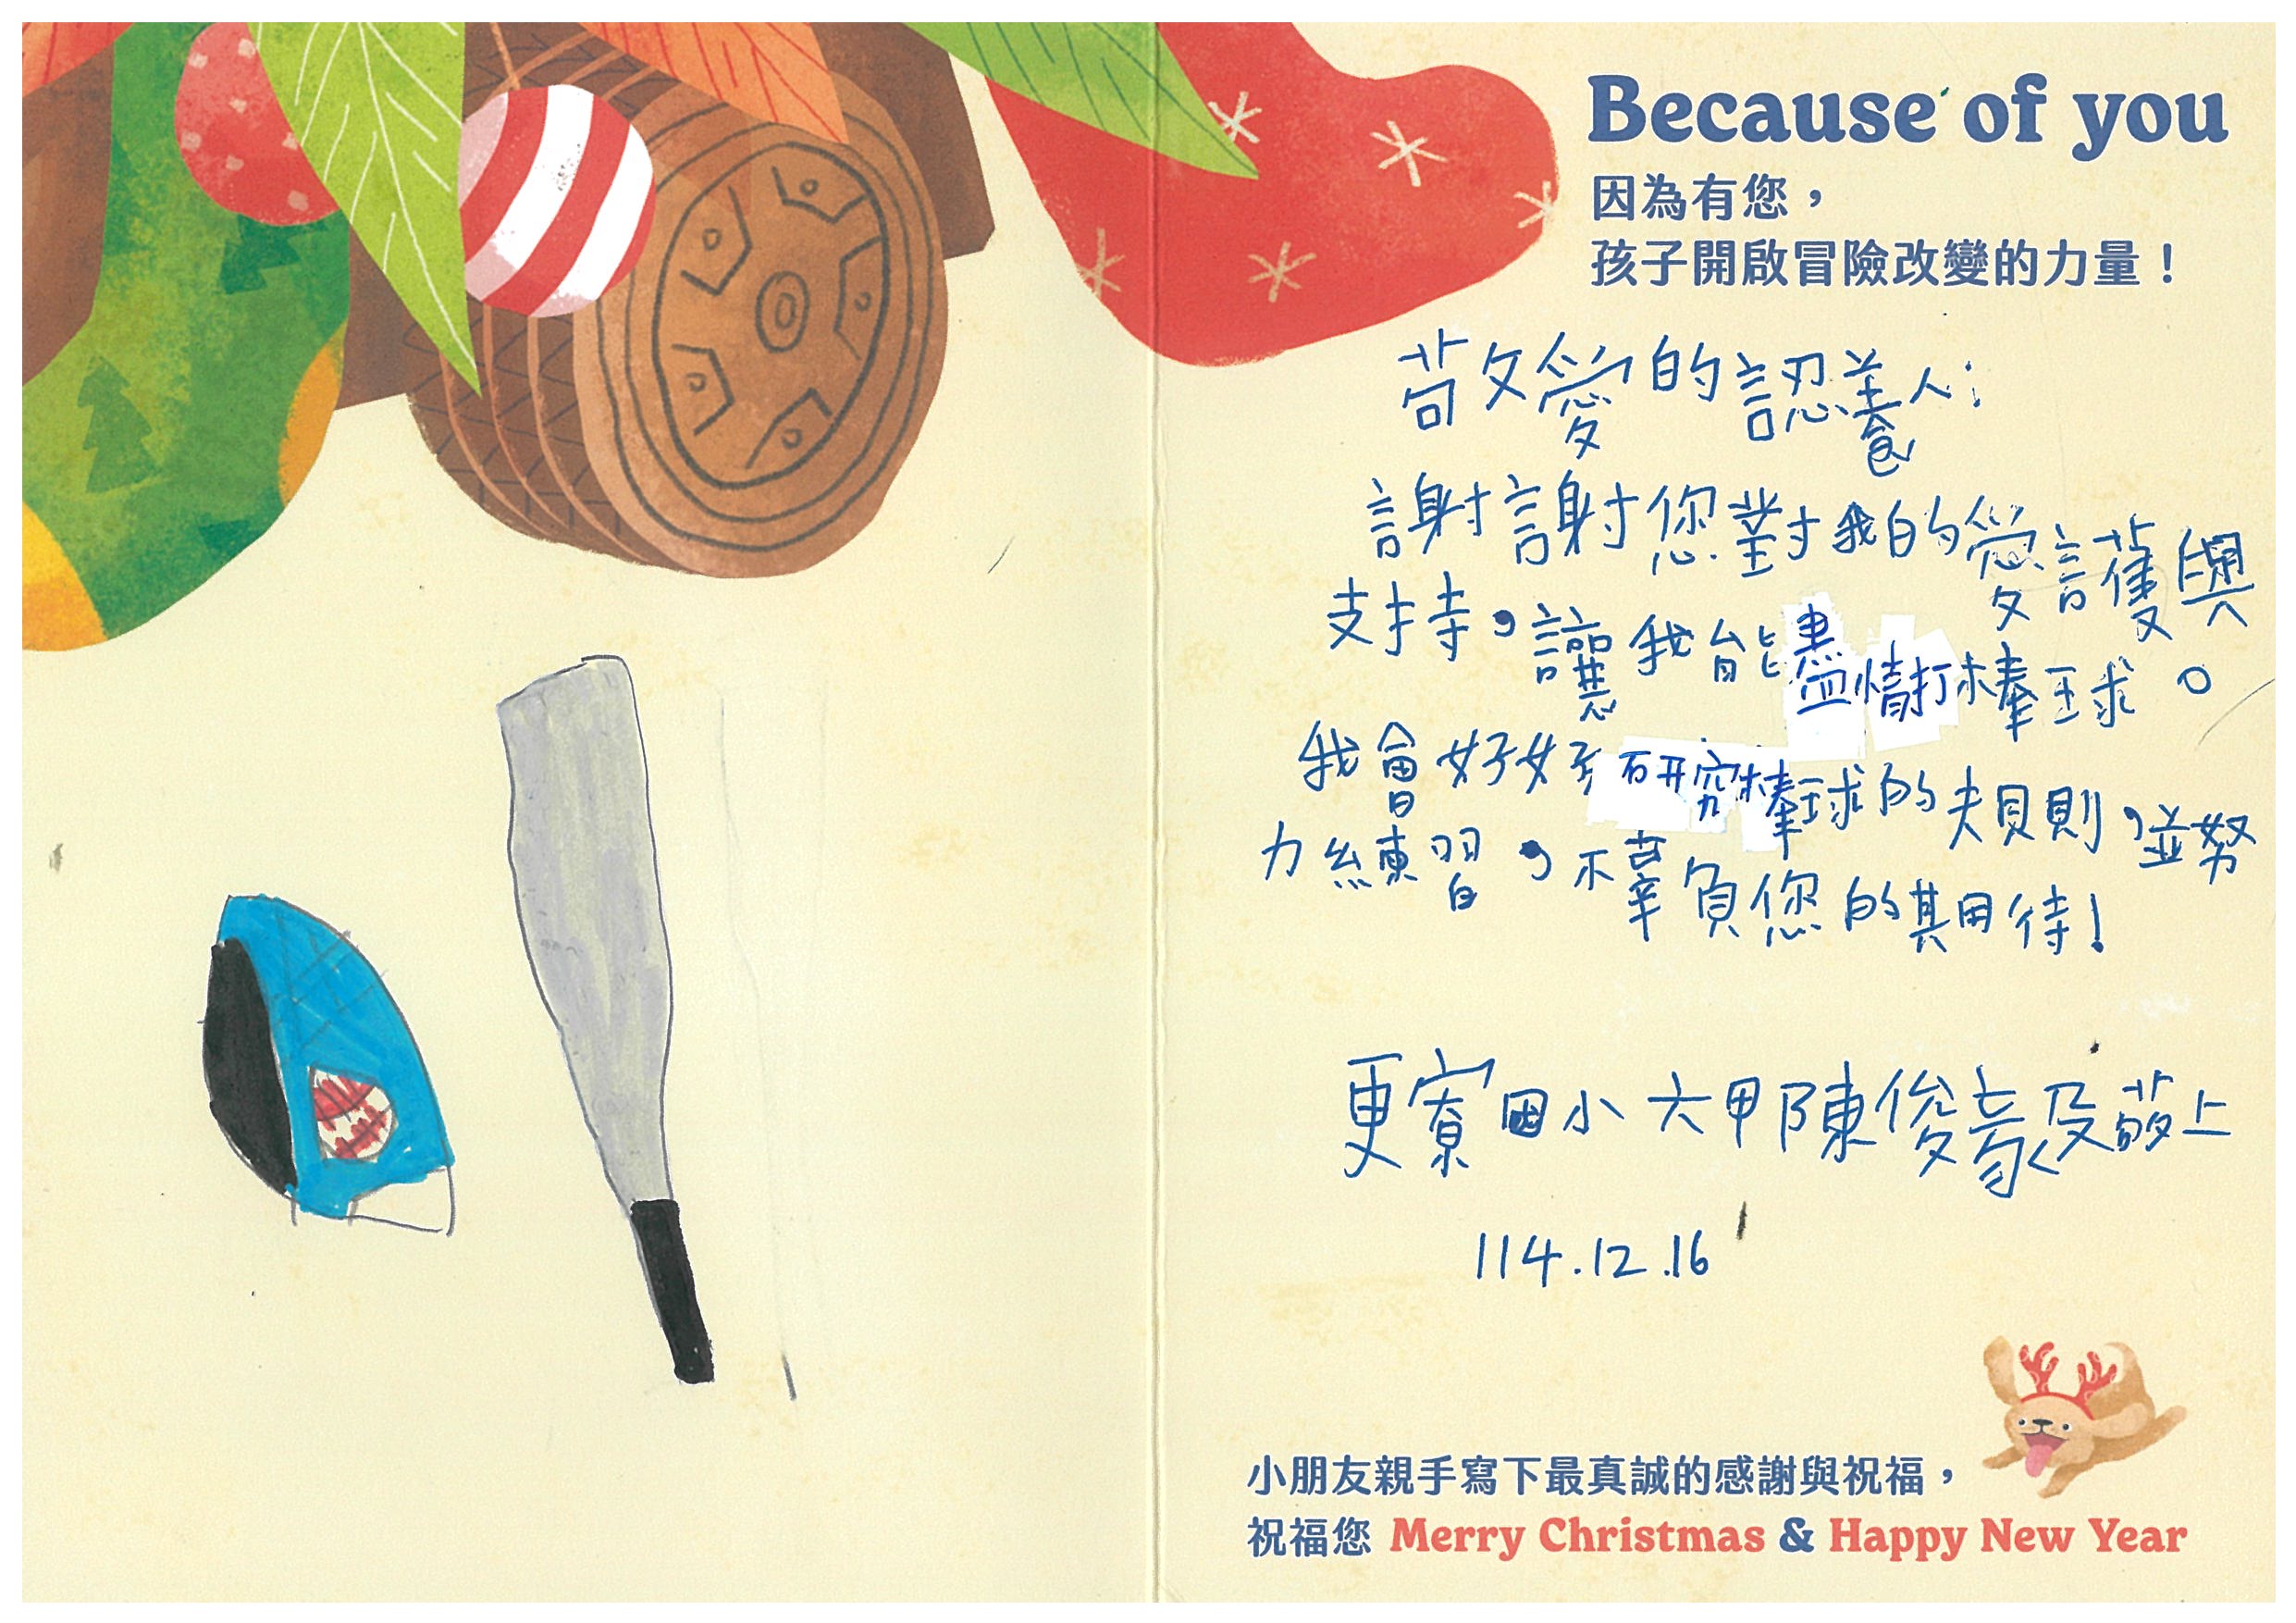 Because of you
因為有您，
孩子開啟冒險改變的力量！
敬愛的認養人：
謝謝您對我的愛護與
支持，讓我能盡情打棒球。
我會好好研究棒球的規則，並努
力練習，不辜負您的期待！
更寮國小六甲陳俊豪及敬上
114.12.16
小朋友親手寫下最真誠的感謝與祝福，
祝福您 Merry Christmas & Happy New Year